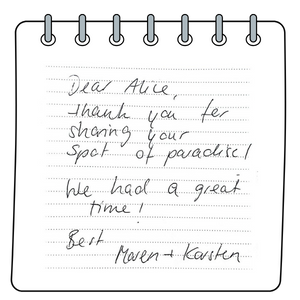 Dear Alice,
thank you for
sharing your
spot of paradise!
We had a great
time!
Best
Maren + Karsten